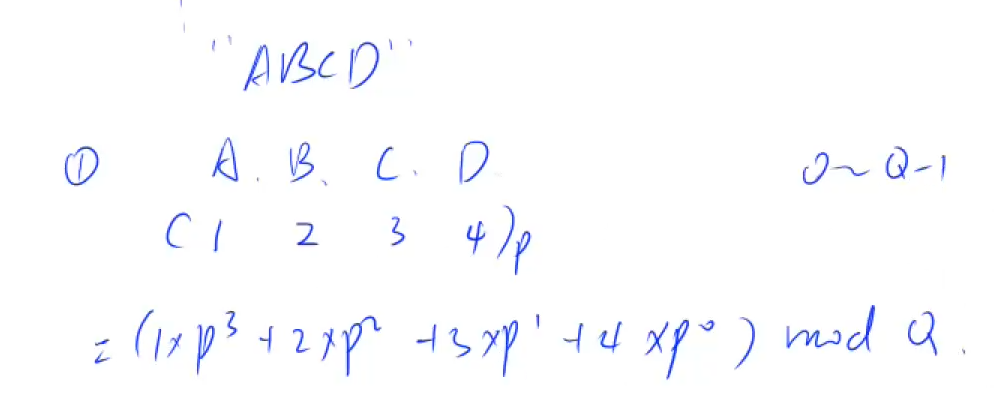 "ABCD"
① A. B. C. D. 0~Q-1
(1 2 3 4)p
=(1×p³+2×p²+3×p¹+4×p⁰) mod Q.